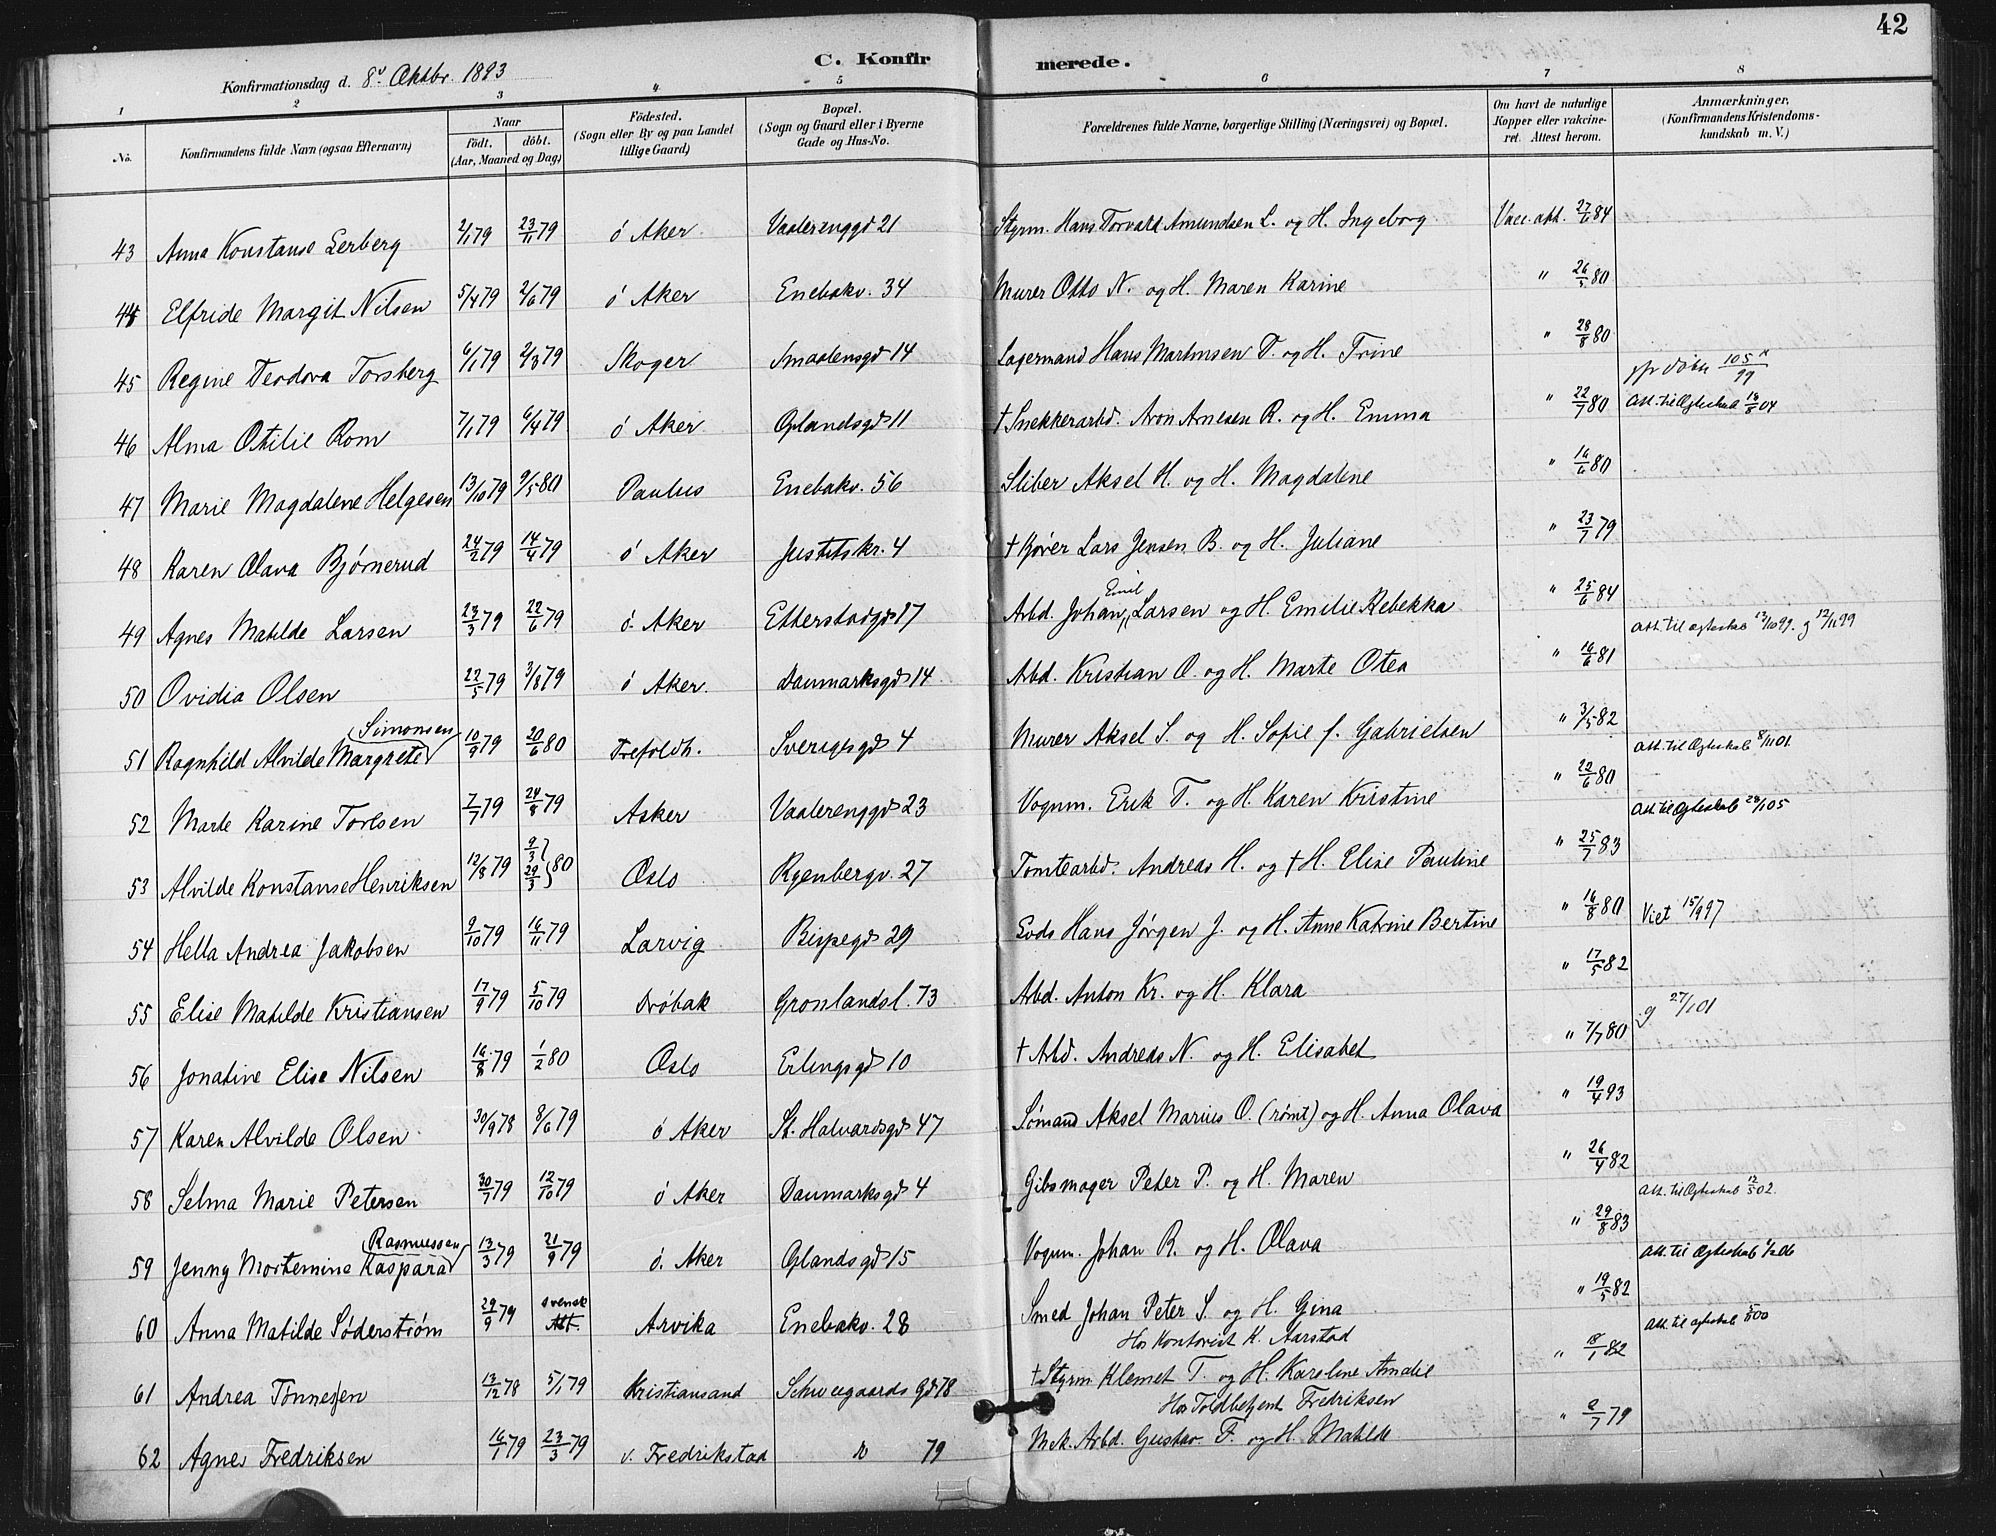 42
C. Konfirmerede.
Konfirmationsdag d. 8d Oktbr. 1893
1 2 3 4 5 6 7 8
No. Konfirmandens fulde Navn (ogsaa Efternavn) Naar födt. döbt. (Aar, Maaned og Dag) Födested. (Sogn eller By og paa Landet tillige Gaard) Bopæl. (Sogn og Gaard eller i Byerne Gade og Hus-No. Forældrenes fulde Navne, borgerlige Stilling (Næringsvei) og Bopæl. Om havt de naturlige Kopper eller vakcineret. Attest herom. Anmærkninger, (Konfirmandens Kristendomskundskab m. V.)
43 Anna Konstanse Lerberg 2/1 79 23/11 79 ö Aker Vaalerenggd 21 Styrm. Hans Torvald Amundsen L. og H. Ingeborg Vacc. att. 27/6 84
44 Elfride Margit Nilsen 5/4 79 2/6 79 ö Aker Enebakv. 34 Murer Otto N. og H. Maren Karine " 26/5 80
45 Regine Teodora Torsberg 6/1 79 2/3 79 Skoger Smaalensgd 14 Lagermand Hans Martinsen T. og H. Trine " 28/8 80
46 Alma Otilie Rom 7/1 79 6/4 79 ö Aker Oplandsgd 11 † Snekkerarbd. Aron Arnesen R. og H. Emma " 22/7 80 105/99 Att. til Ægteskab 18/8 04
47 Marie Magdalene Helgesen 13/10 79 9/5 80 Paulus Enebakv. 56 Sliber Aksel H. og H. Magdalene " 16/6 80
48 Karen Olava Bjørnerud 24/2 79 14/4 79 ö Aker Justitskr. 4 † Kjører Lars Jensen B. og H. Juliane " 23/7 79
49 Agnes Matilde Larsen 23/3 79 22/6 79 ö. Aker Etterstadgd 17 Arbd. Johan Emil Larsen og H. Emilie Rebekka " 25/6 84
50 Ovidia Olsen 22/5 79 3/8 79 ö Aker. Danmarksgd 14 Arbd. Kristian O. og H. Marte Otea " 16/6 81 Att. til Ægteskab 13/10 99. g 12/11 99
51 Ragnhild Alvilde Margrete Simonsen 10/9 79 20/6 80 Trefoldh. Sverigesgd 4 Murer Aksel S. og H. Sofie f. Gabrielsen " 3/5 82
52 Marte Karine Toresen 7/7 79 24/8 79 Asker Vaalerenggd 23 Vognm. Erik T. og H. Karen Kristine " 22/6 80 Att. til Ægteskab 8/11 01
53 Alvilde Konstanse Henriksen 12/8 79 9/3 29/3 } 80 Oslo Ryenbergv. 27 Tomtearbd. Andreas H. og † H. Elise Pauline " 25/7 83 Att. til Ægteskab 29/1 05
54 Hella Andrea Jakobsen 9/10 79 16/11 79 Larvig Bispegd 29 Evds Hans Jørgen J. og H. Anne Katrine Bertine " 16/8 80 Viet 15/9 97
55 Elise Matilde Kristiansen 17/9 79 5/10 79 Dröbak Grønlandsl. 73 Arbd. Anton Kr. og H. Klara " 17/5 82
56 Jonatine Elise Nilsen 16/8 79 1/2 80 Oslo Erlingsgd 10 † Arbd. Andreas N. og H. Elisabet " 7/7 80 g 27/1 01
57 Karen Alvilde Olsen 30/9 78 8/6 79 ö Aker St. Halvardsgd 47 Sømand Aksel Marius O. (rømt) og H. Anna Olava " 19/4 93
58 Selma Marie Petersen 30/7 79 12/10 79 ö Aker Danmarksgd 4 Gibsmager Peter P. og H. Maren " 26/4 82
59 Jenny Mortemine Kaspara Rasmussen 13/3 79 21/9 79 ö. Aker Oplandsgd 15 Vognm. Johan R. og H. Olava " 29/8 83 Att. til Ægteskab 12/5 02.
60 Anna Matilde Søderstrøm 29/9 79 svensk Att. Arvika Enebakv. 28 Smed Johan Peter S. og H. Gina " 19/5 82 Att. til Ægteskab 1/2 06
Hos Kontorist K. Aarstad
61 Andrea Tønnesen 13/12 78 5/1 79 Kristiansand Schweigaards gd 78 † Styrm Klemet T. og H. Karoline Amalie " 18/1 82 Att. til ægteskab 5/5 00
Hos Toldbetjent Fredriksen
62 Agnes Fredriksen 16/1 79 23/3 79 v. Fredrikstad do 79 Mek. Arbd. Gustav F. og H. Matilde " 8/7 79